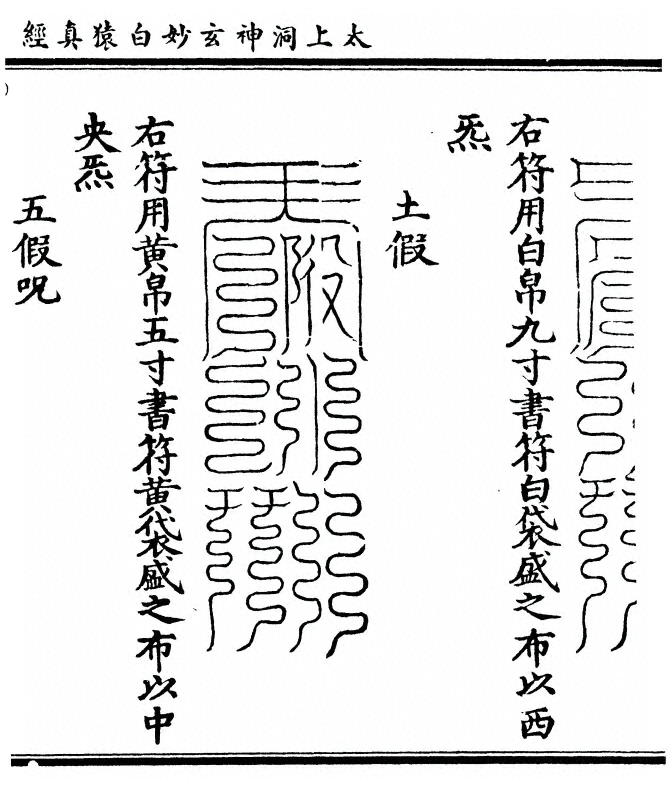 太上洞神玄妙白猿真經
右符用白帛九寸書符白袋盛之布以西
炁
土假
右符用黃帛五寸書符黃袋盛之布以中
央炁
五假呪